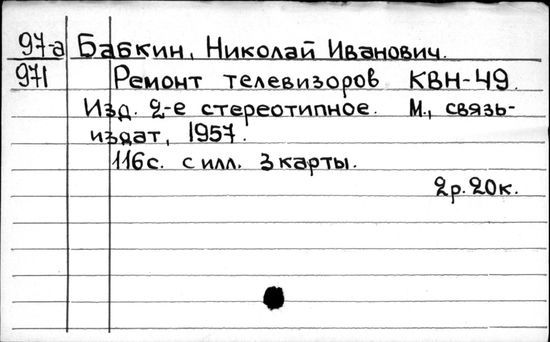 97-а Бабкин, Николай Иванович.
971 Ремонт телевизоров КВН-49.
Изд. 2-е стереотипное. М., связь-
издат, 1957.
116с. с илл. 3 карты.
2р. 20к.